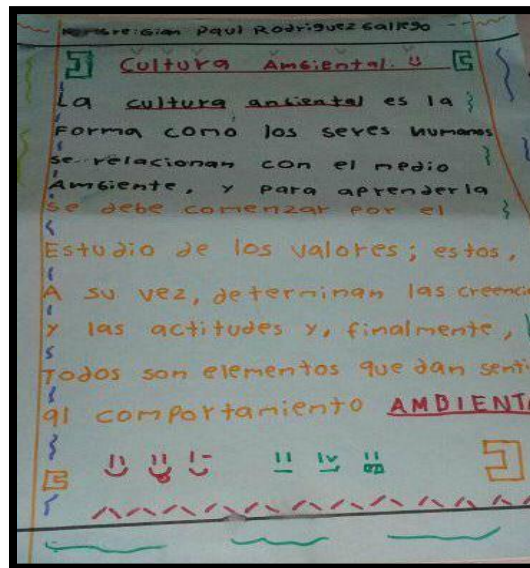 Nombre: Gian Paul Rodriguez Gallego
Cultura Ambiental
La cultura ambiental es la
Forma como los seres humanos
se relacionan con el medio
Ambiente, y para aprenderla
se debe comenzar por el
Estudio de los valores; estos,
A su vez, determinan las creenci
Y las actitudes y, finalmente,
Todos son elementos que dan sent
al comportamiento AMBIENTA